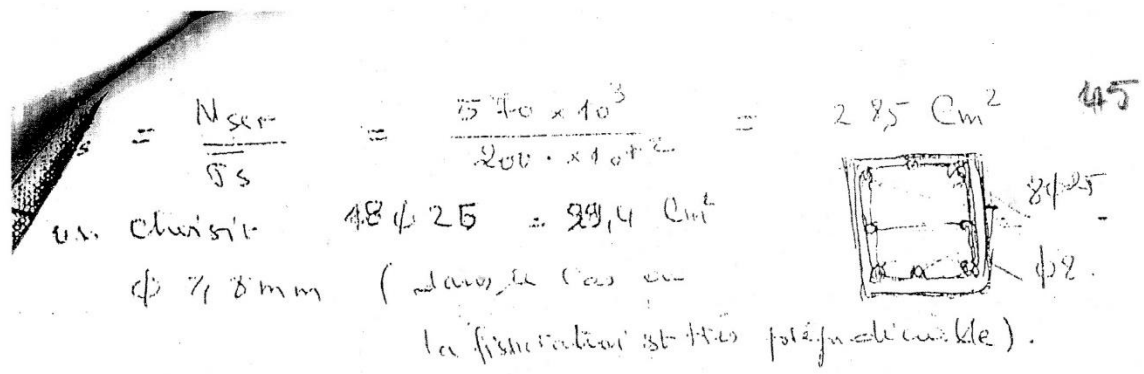 s = Nser / σ̅s = 570 × 10³ / 200 · × 10⁺² = 28,5 Cm² 45
choisir 8 ϕ 25 = 39,4 Cm² 8ϕ25
ϕ ⩾ 8 mm ( dans le Cas où ϕ8
la fissuration est très préjudiciable).